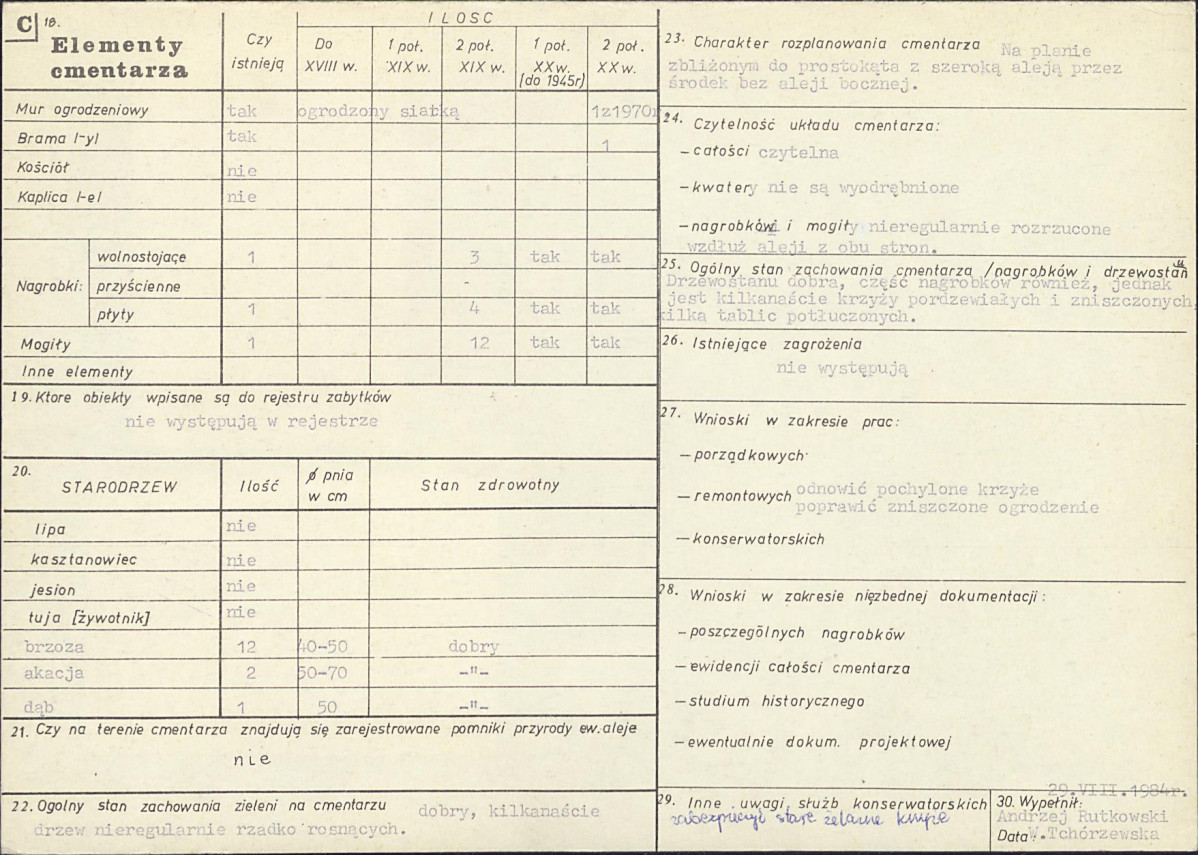 C 18.
Elementy cmentarza
Czy istnieją
ILOSC
Do XVIII w.
1 poł. XIX w.
2 poł. XIX w.
1 poł. XX w. (do 1945r)
2 poł. XX w.
Mur ogrodzeniowy tak ogrodzony siatką 1z1970r
Brama /-y/ tak 1
Kościół nie
Kaplica /-e/ nie
Nagrobki:
wolnostojące 1 3 tak tak
przyścienne -
płyty 1 4 tak tak
Mogiły 1 12 tak tak
Inne elementy
19. Ktore obiekty wpisane są do rejestru zabytków
nie występują w rejestrze
20. STARODRZEW Ilość ø pnia w cm Stan zdrowotny
lipa nie
kasztanowiec nie
jesion nie
tuja [żywotnik] nie
brzoza 12 40-50 dobry
akacja 2 50-70 -"-
dąb 1 50 -"-
21. Czy na terenie cmentarza znajdują się zarejestrowane pomniki przyrody ew. aleje
nie
22. Ogolny stan zachowania zieleni na cmentarzu dobry, kilkanaście
drzew nieregularnie rzadko rosnących.
23. Charakter rozplanowania cmentarza Na planie
zbliżonym do prostokąta z szeroką aleją przez
środek bez aleji bocznej.
24. Czytelność układu cmentarza:
- całości czytelna
- kwatery nie są wyodrębnione
- nagrobków i mogiły nieregularnie rozrzucone
wzdłuż aleji z obu stron.
25. Ogólny stan zachowania cmentarza /nagrobków i drzewostanu
Drzewostanu dobra, część nagrobków również, jednak
jest kilkanaście krzyży pordzewiałych i zniszczonych,
kilka tablic potłuczonych.
26. Istniejące zagrożenia
nie występują
27. Wnioski w zakresie prac:
- porządkowych
- remontowych odnowić pochylone krzyże
poprawić zniszczone ogrodzenie
- konserwatorskich
28. Wnioski w zakresie niezbednej dokumentacji:
- poszczególnych nagrobków
- ewidencji całości cmentarza
- studium historycznego
- ewentualnie dokum. projektowej
29. Inne uwagi służb konserwatorskich
zabezpieczyć stare żelazne krzyże
29.VIII.1984r.
30. Wypełnił:
Andrzej Rutkowski
Data: W.Tchórzewska